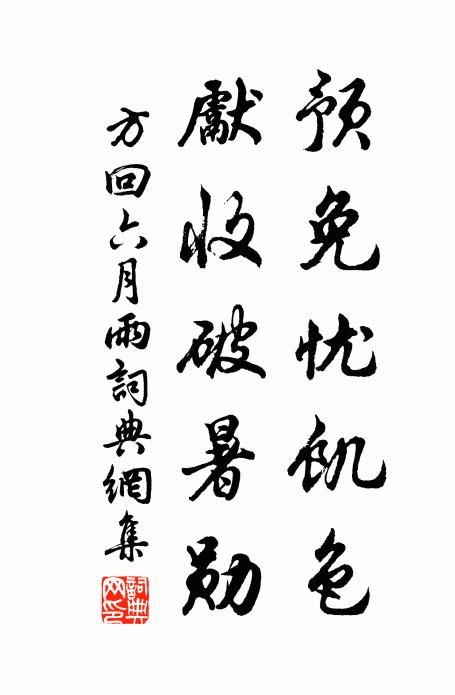 预免忧饥色
獻收破暑勋
方回六月雨詞典網集
詞典网印